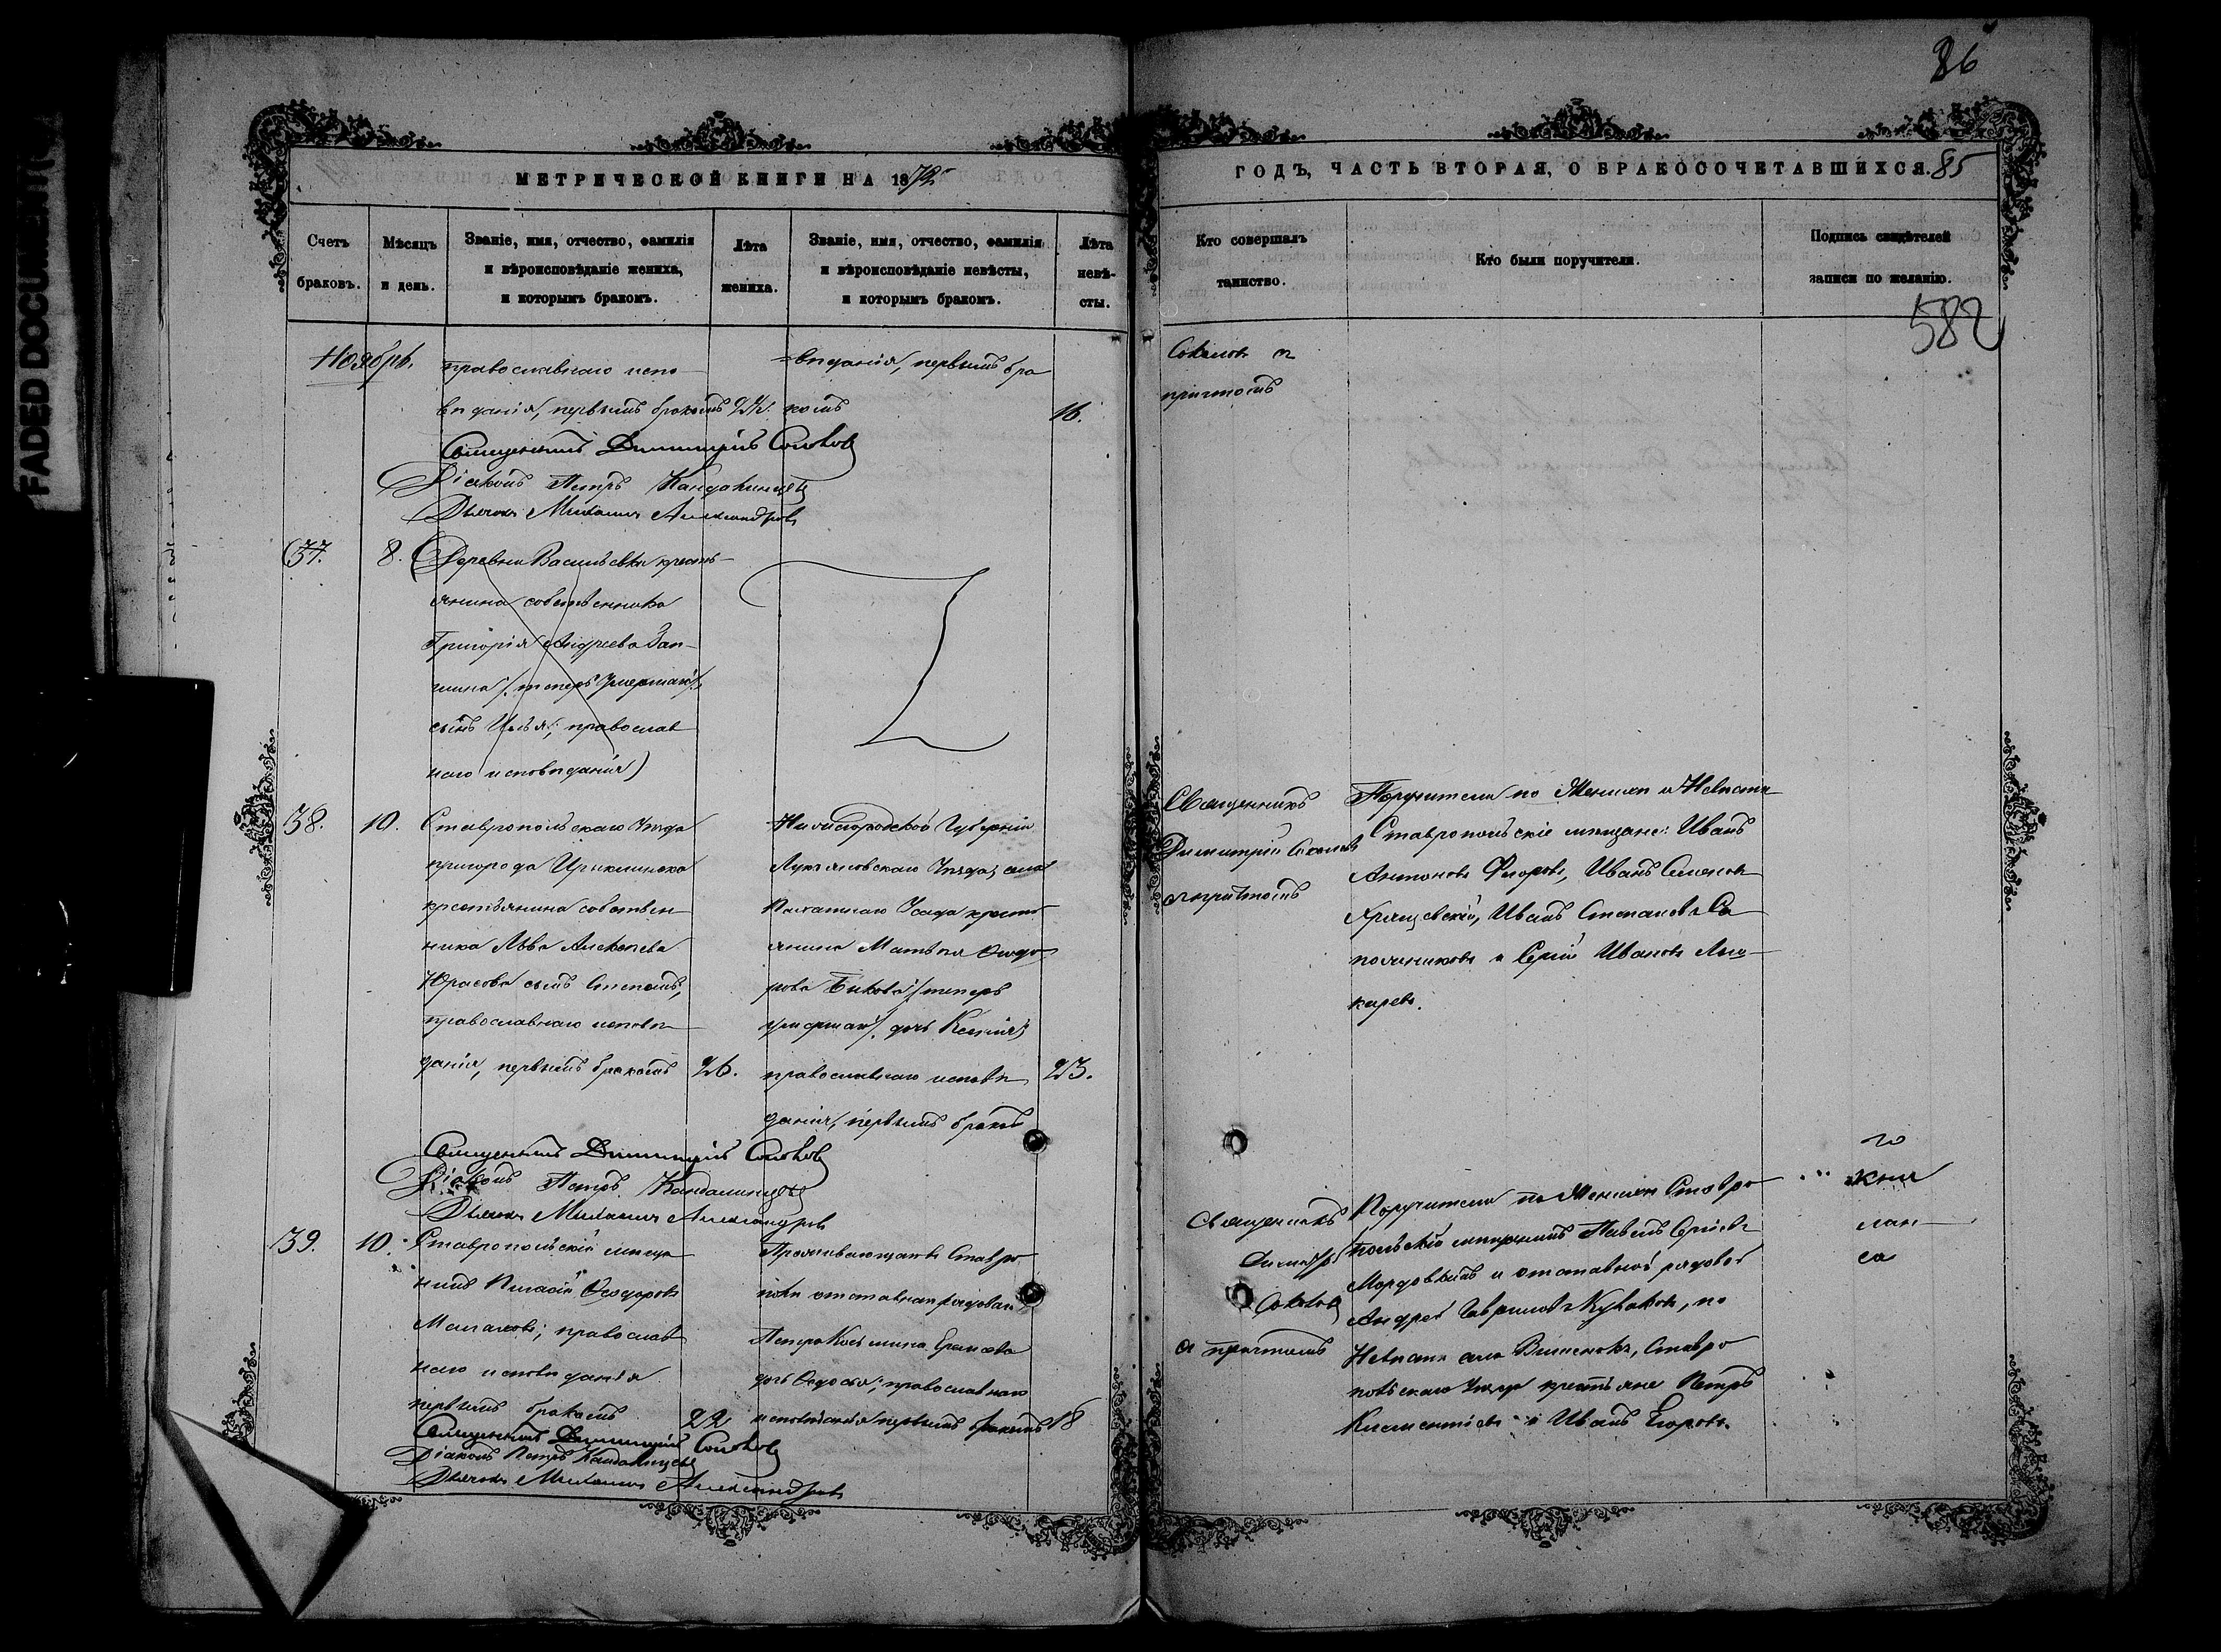 FADED DOCUMENT
86
МЕТРИЧЕСКОЙ КНИГИ НА 1872
ГОДЪ, ЧАСТЬ ВТОРАЯ, О БРАКОСОЧЕТАВШИХСЯ. 85
Счетъ браковъ.
Мѣсяцъ и день.
Званіе, имя, отчество, фамилія
и вѣроисповѣданіе жениха,
и которымъ бракомъ.
Лѣта жениха.
Званіе, имя, отчество, фамилія
и вѣроисповѣданіе невѣсты,
и которымъ бракомъ.
Лѣта невѣ-
сты.
Кто совершалъ
таинство.
Кто были поручители.
Подпись свидѣтелей
записи по желанію.
582
Ноябрь.
православнаго испо-
вѣданія, первымъ бракомъ
=вѣданія, первымъ бра
комъ
16.
Соколовъ съ
причтомъ
Священникъ Димитрій Соколовъ
Діаконъ Петръ
Дьячокъ Михаилъ Александровъ
37.
8.
Деревни Васильевки кресть-
янина собственника
Григорія Андреева
/теперь умершаго/
сынъ Илья; православ
наго исповѣданія)
38.
10.
Ставропольскаго Уѣзда
пригорода
крестьянина собствен
ника Льва Алексѣева
Юрасова сынъ Степанъ,
православнаго исповѣ
данія, первымъ бракомъ
26.
Нижегородской Губерніи
Лукояновскаго Уѣзда, села
Усада крестъ
янина Матвѣя Ѳедо
рова Быкова /теперь
умершаго/. дочь Ксенія;
православнаго исповѣ
данія, первымъ бракомъ
23.
Священникъ
Димитрій Соколовъ
съ причтомъ
Поручители по Женихѣ и Невѣстѣ
Ставропольскіе мѣщане: Иванъ
Антоновъ Иванъ Семеновъ
Хрящевскій, Иванъ Степановъ Са
пожниковъ и Сергій Ивановъ
каревъ.
Священникъ Димитрій Соколовъ
Діаконъ Петръ
Дьячокъ Михаилъ Александровъ
39.
10.
Ставропольскій мѣща
нинъ Ѳеодоровъ
православ
наго исповѣданія
первымъ бракомъ
22
Проживающаго въ Ставро
полѣ отставнаго рядоваго
Петра Косьмина
дочь Ѳедосья; православнаго
исповѣданія первымъ бракомъ
18
Священникъ
Димитрій
Соколовъ
съ причтомъ
Поручители по Женихѣ Ставро
польскій мѣщанинъ Павелъ Сергѣевъ
Мордовинъ и отставной рядовой
Андрей Гавриловъ Кулаковъ, по
Невѣстѣ села Вишенокъ, Ставро
польскаго Уѣзда крестьяне Петръ
и Иванъ Егоровъ.
Священникъ Димитрій Соколовъ
Діаконъ Петръ
Дьячокъ Михаилъ Александровъ